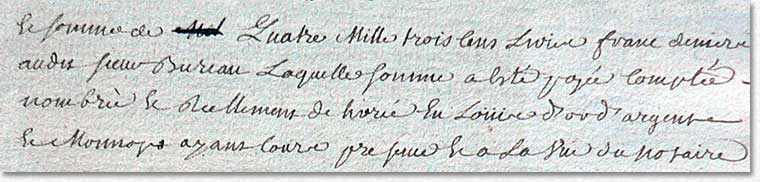 la somme de Quatre Mille trois Cens Livre franc denier
audit sieur Bureau Laquelle somme a Esté payée Comptée
nombrée Et Reellement delivrée En Loüis d'or d'argent
Et Monnoye ayant Cours presence Et a La Vüe du notaire